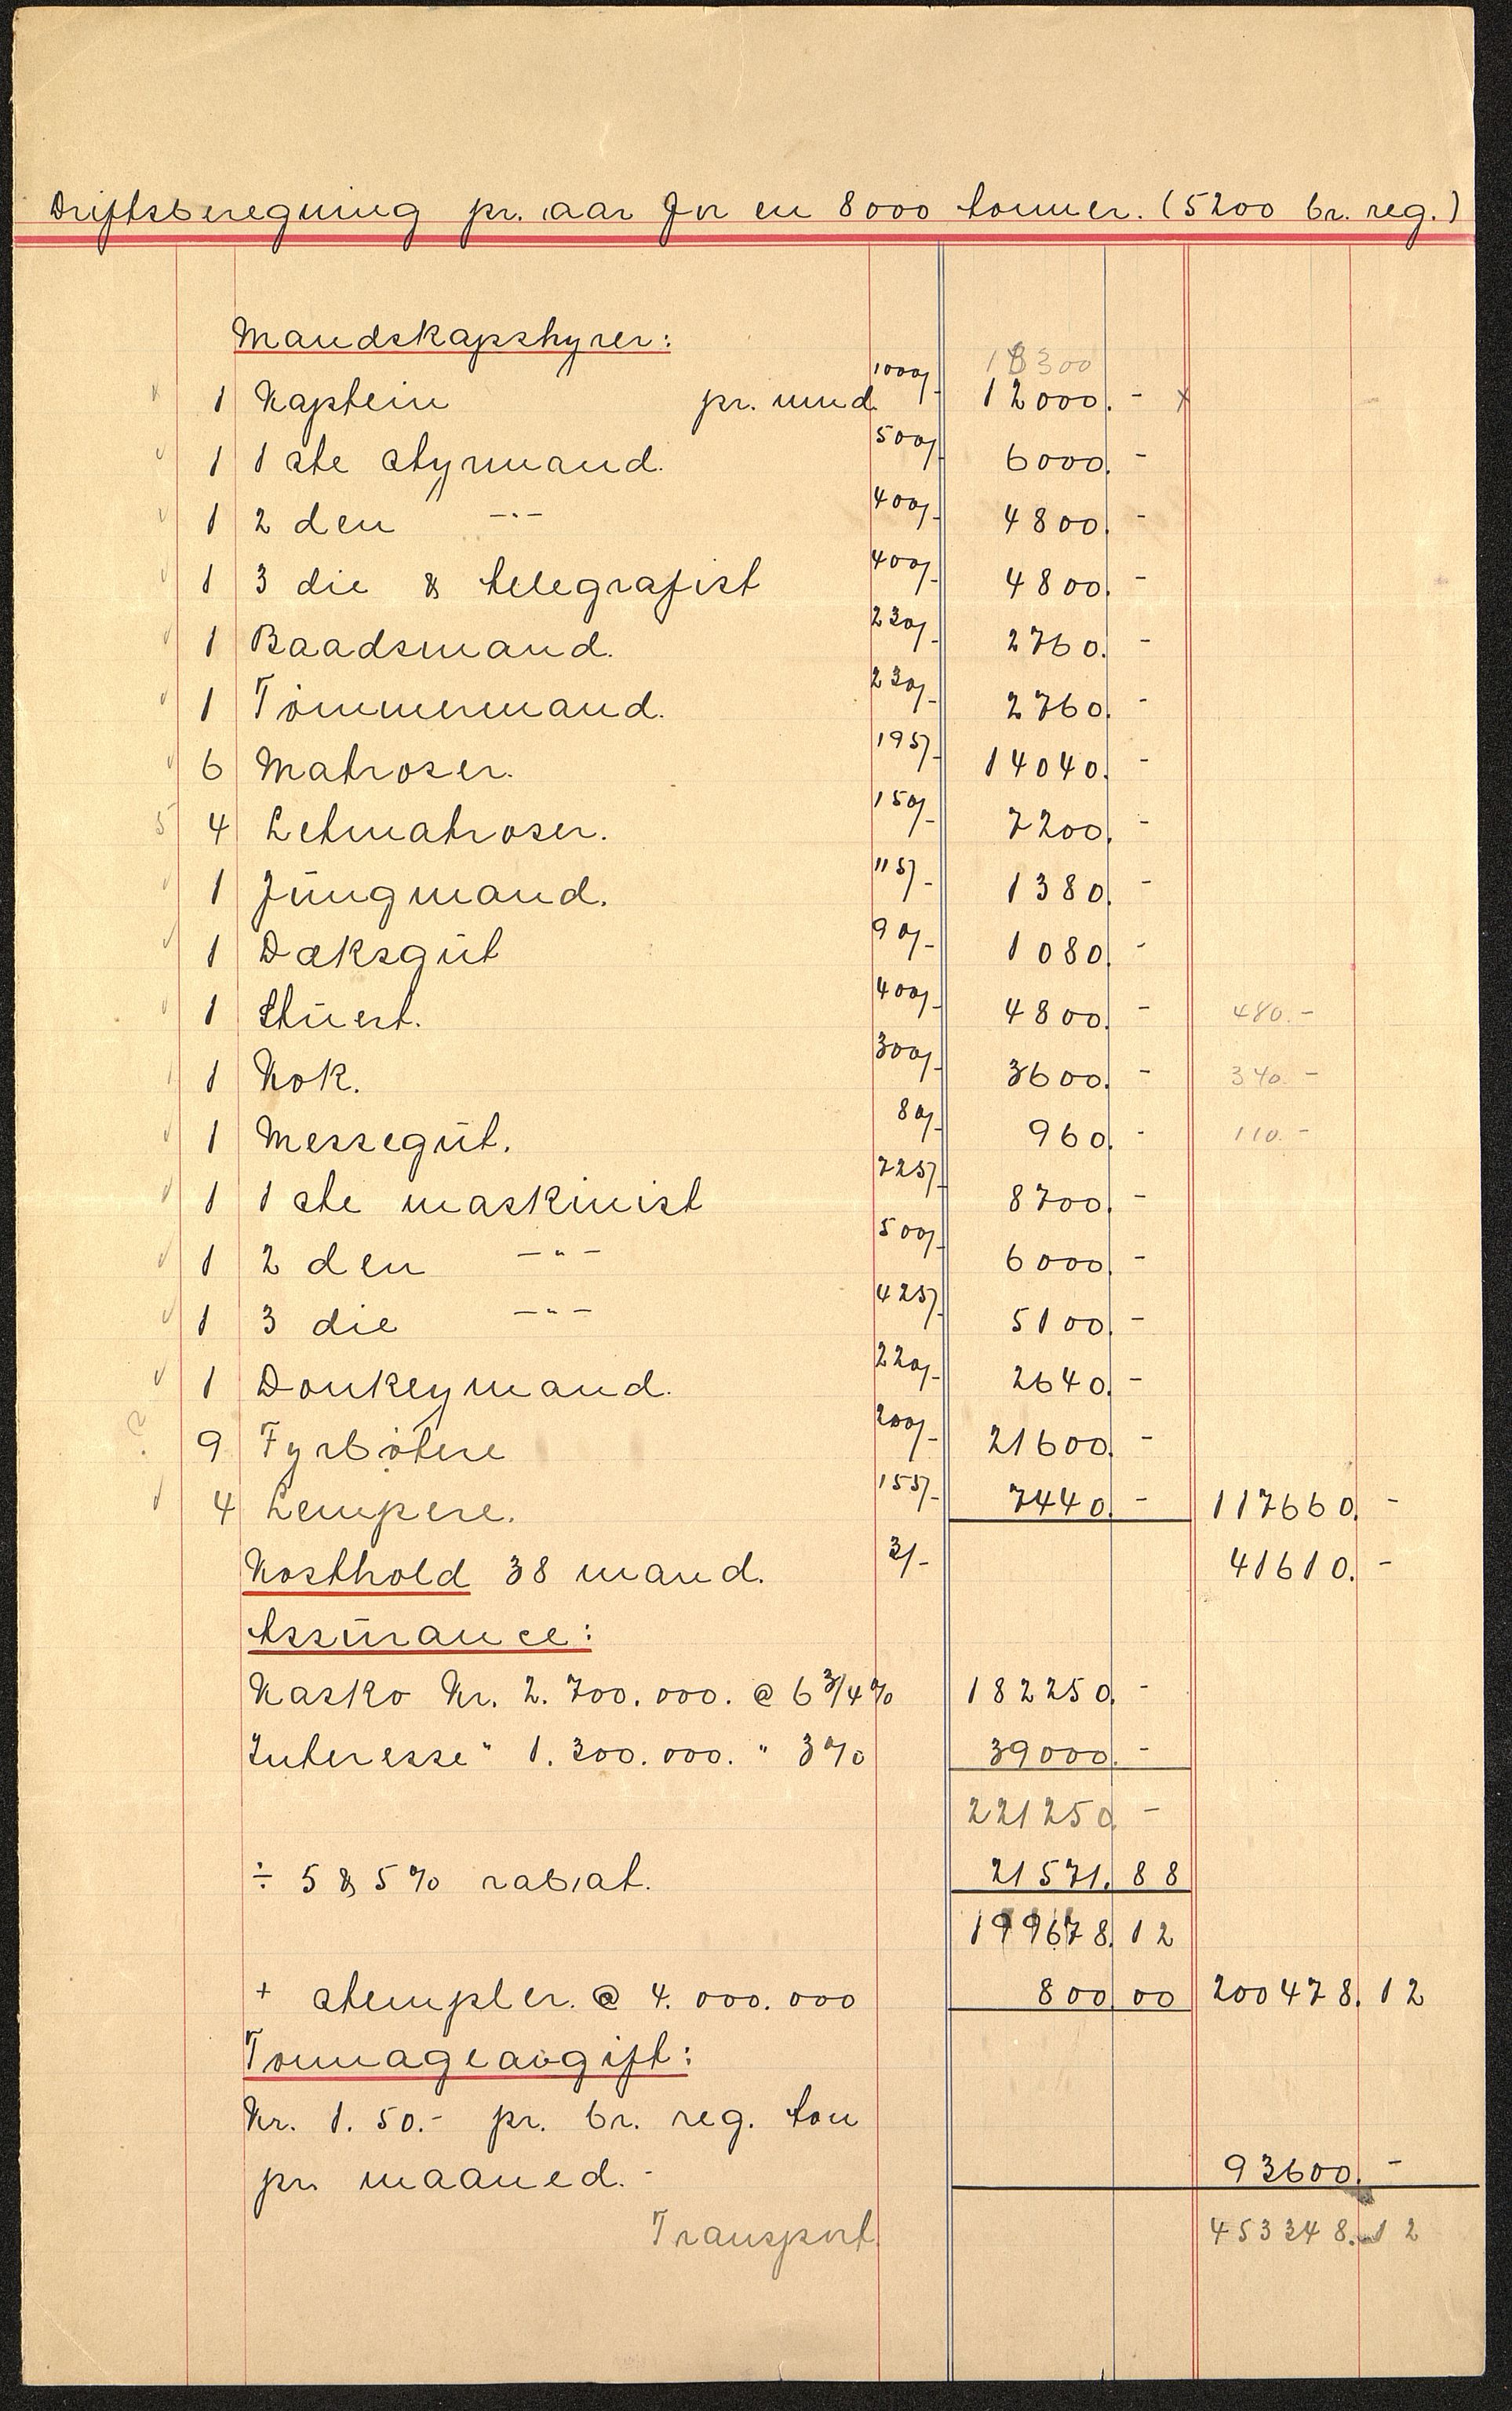 Driftsberegning pr. aar for en 8000 tonner. (5200 br. reg.)
Mandskapshyrer:
18300
1 Kaptein pr. mnd. 1000/- 12000. - x
1 1ste styrmand. 500/- 6000. -
1 2den -"- 400/- 4800. -
1 3die & telegrafist 400/- 4800. -
1 Baadsmand. 230/- 2760. -
1 Tömmermand. 230/- 2760. -
6 Matroser. 195/- 14040. -
5 4 Letmatroser. 150/- 7200. -
1 Jungmand. 115/- 1380. -
1 Dæksgut 90/- 1080. -
1 Stuert. 400/- 4800. - 480.-
1 Kok. 300/- 3600. - 340.-
1 Messegut. 80/- 960. - 110.-
1 1ste maskinist 725/- 8700. -
1 2den -"- 500/- 6000. -
1 3die -"- 425/- 5100. -
1 Donkeymand. 220/- 2640. -
? 9 Fyrbötere 200/- 21600. -
4 Lempere. 155/- 7440. - 117660. -
Kosthold 38 mand. 3/- 41610. -
Assurance:
Kasko Kr. 2.700.000. @ 6 3/4 % 182250. -
Interesse " 1.300.000. " 3% 39000. -
221250. -
÷ 5 & 5% rabat. 21571.88
199678.12
+ stempler. @ 4.000.000 800 00 200478.12
Tonnageavgift:
Kr. 1.50.- pr. br. reg. ton
pr. maaned.- 93600. -
Transport 453348.12